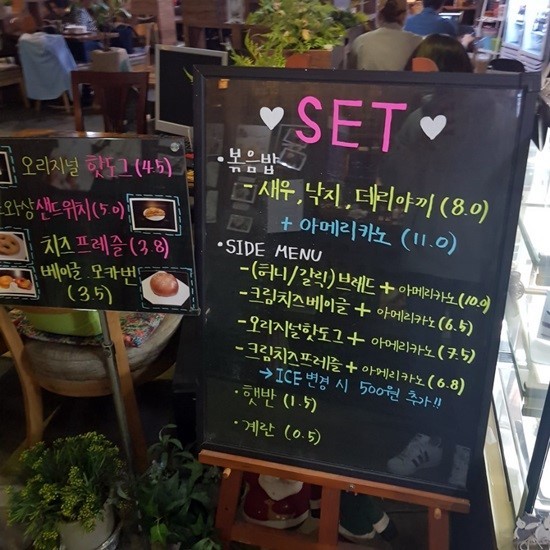 오리지널 핫도그 (4.5)
와상샌드위치 (5.0)
치즈 프레즐 (3.8)
베이글, 모카번
(3.5)
♥ SET ♥
• 볶음밥
- 새우, 낙지, 데리야끼 (8.0)
+ 아메리카노 (11.0)
• SIDE MENU
- (허니/갈릭) 브레드 + 아메리카노 (10.0)
- 크림치즈베이글 + 아메리카노 (6.5)
- 오리지널핫도그 + 아메리카노 (7.5)
- 크림치즈프레즐 + 아메리카노 (6.8)
→ ICE 변경 시 500원 추가!!
• 햇반 (1.5)
• 계란 (0.5)